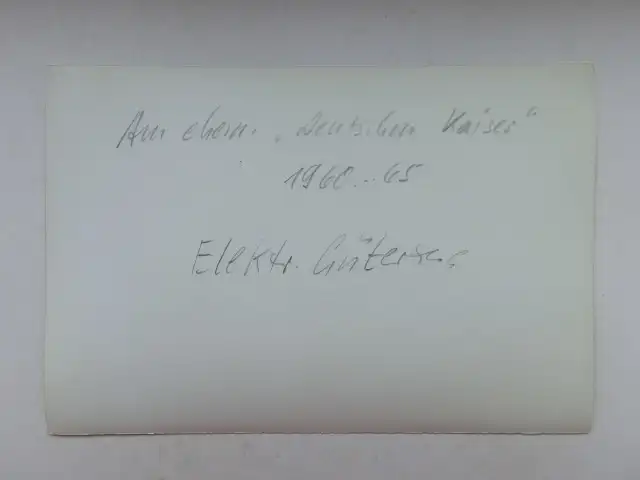 Am ehem. „Deutschen Kaiser"
1960..65
Elektr.